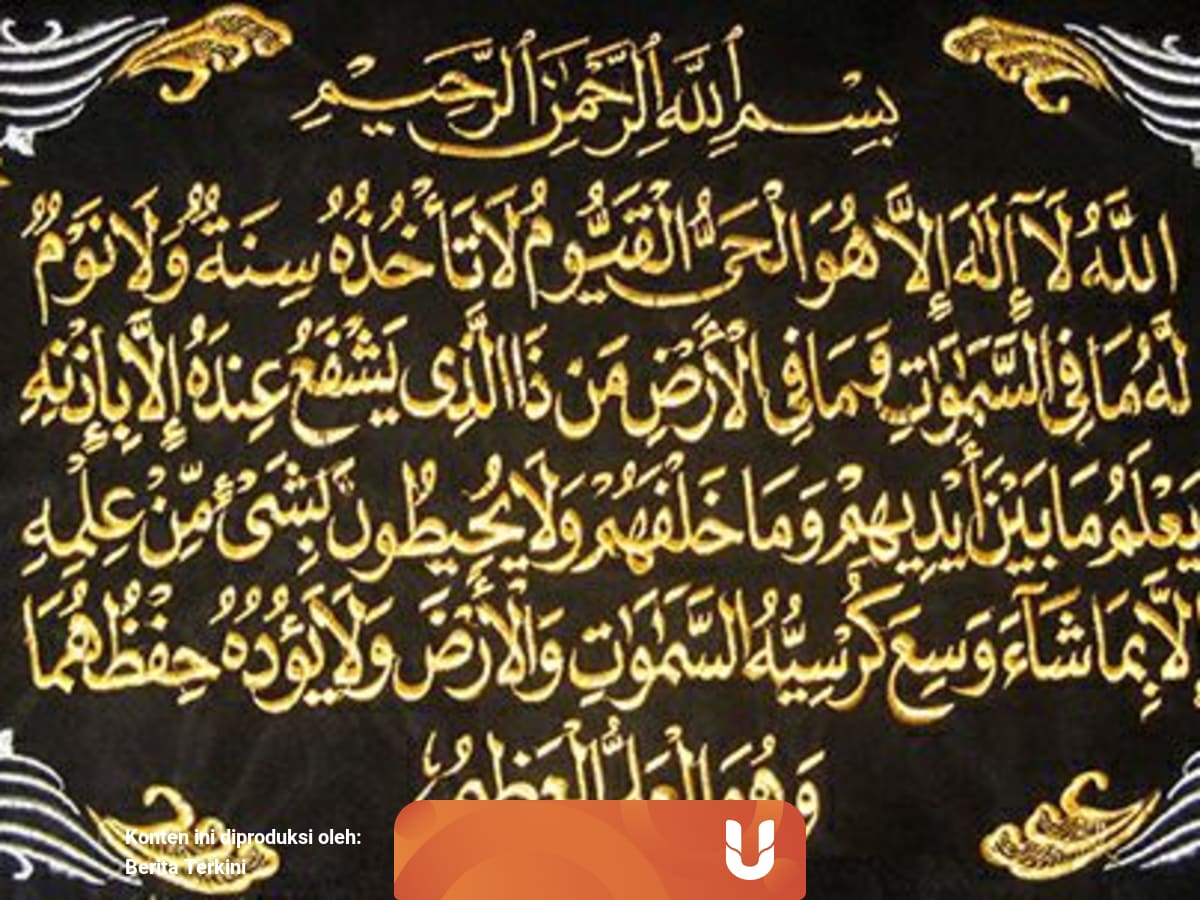 بِسْمِ اللَّهِ الرَّحْمَٰنِ الرَّحِيمِ
اللَّهُ لَا إِلَٰهَ إِلَّا هُوَ الْحَيُّ الْقَيُّومُ لَا تَأْخُذُهُ سِنَةٌ وَلَا نَوْمٌ
لَّهُ مَا فِي السَّمَٰوَٰتِ وَمَا فِي الْأَرْضِ مَن ذَا الَّذِي يَشْفَعُ عِندَهُ إِلَّا بِإِذْنِهِ
يَعْلَمُ مَا بَيْنَ أَيْدِيهِمْ وَمَا خَلْفَهُمْ وَلَا يُحِيطُونَ بِشَيْءٍ مِّنْ عِلْمِهِ
إِلَّا بِمَا شَاءَ وَسِعَ كُرْسِيُّهُ السَّمَٰوَٰتِ وَالْأَرْضَ وَلَا يَئُودُهُ حِفْظُهُمَا
وَهُوَ الْعَلِيُّ الْعَظِيمُ
Konten ini diproduksi oleh:
Berita Terkini